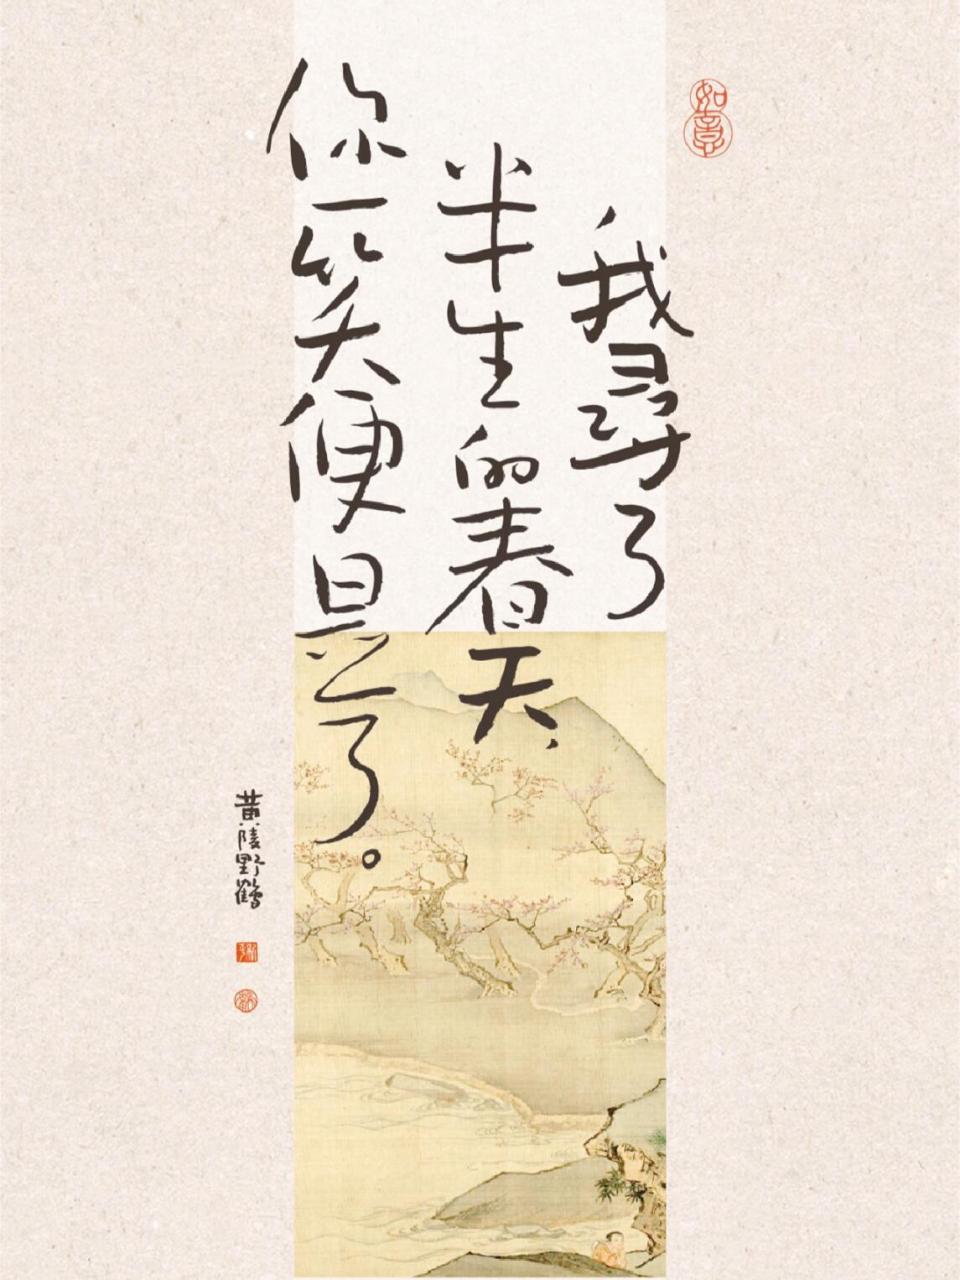 如意
我尋了
半生的春天、
你一笑便是了。
黄陵野鶴